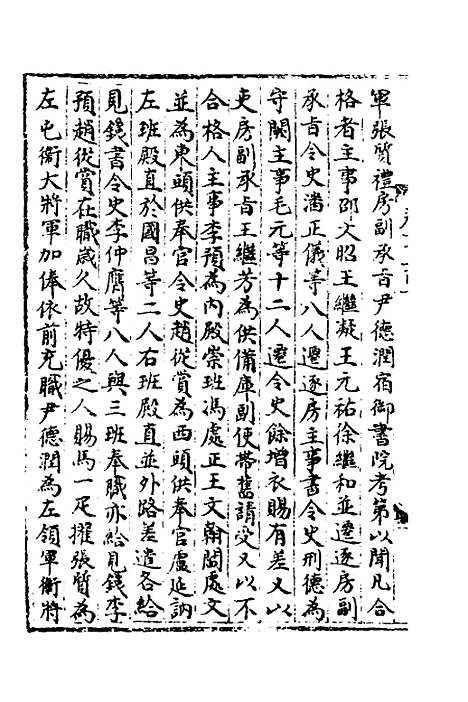 軍張質禮房副承旨尹德潤宿御書院考第以聞凡合
格者主事邵文昭王繼凝王元祐徐繼和並遷逐房副
承旨令史潘正儀等八人遷逐房主事書令史刑德為
守闕主事毛元等十二人遷令史餘增衣賜有差又以
吏房副承旨王繼芳為供備庫副使帶舊請受又以不
合格人主事李預為內殿崇班馮處正王文翰閻處文
並為東頭供奉官令史趙從賞為西頭供奉官盧延訥
左班殿直於國昌等二人右班殿直並外路差遣各給
見錢書令史李仲膺等八人與三班奉職亦給見錢李
預趙從賞在職歲久故特優之人賜馬一疋擢張質為
左屯衛大將軍加俸依前充職尹德潤為左領軍衛將